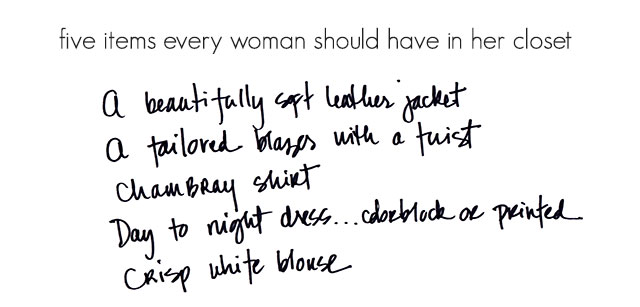 five items every woman should have in her closet
a beautifully soft leather jacket
a tailored blazer with a twist
chambray shirt
Day to night dress... colorblock or printed
crisp white blouse